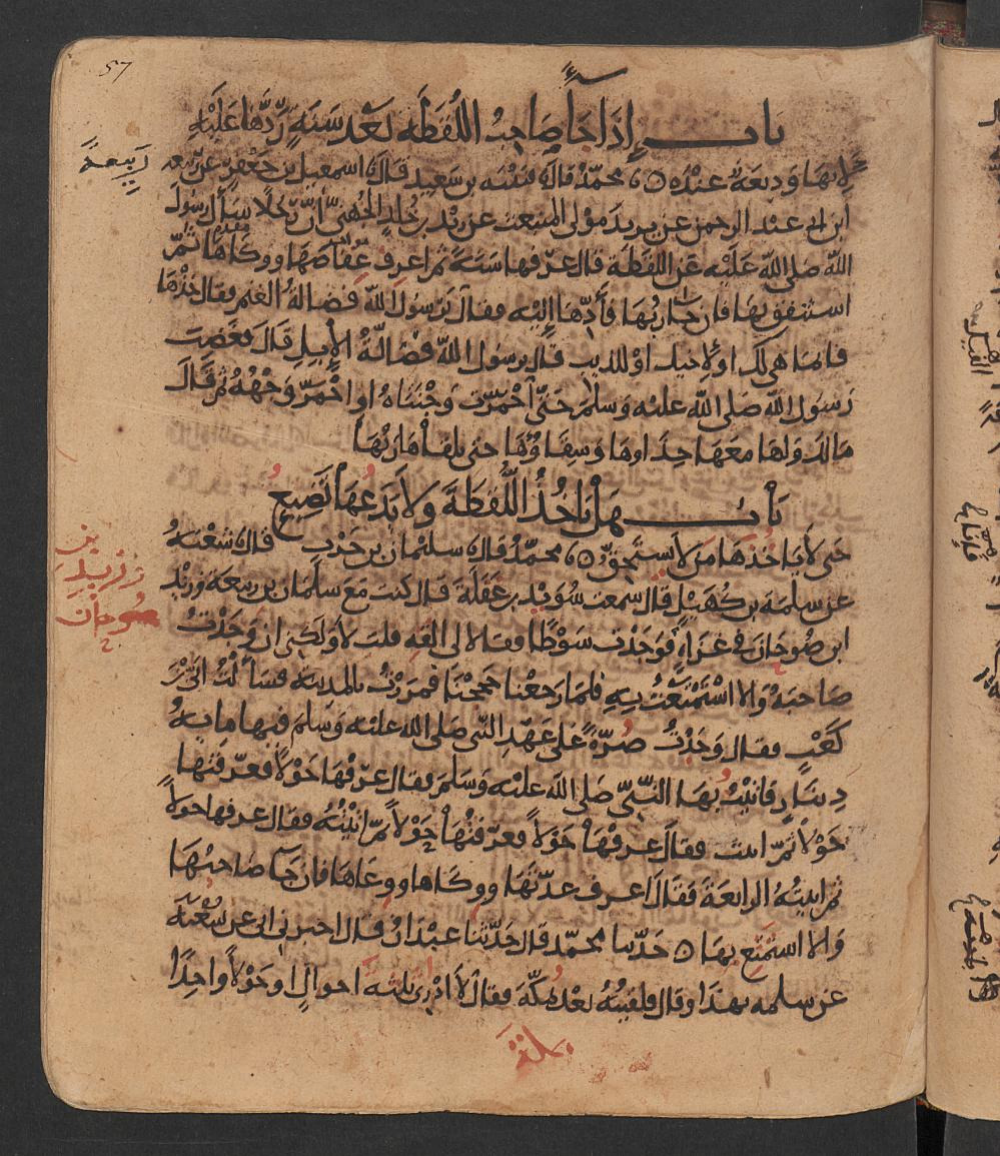 57
باب إذا جا صاحب اللقطه بعد سنة ردها عليه
لانها وديعة عنده ٥ محمد قال قتيبه بن سعيد قال اسمعيل بن جعفر عن ربيعه
ربيعة
ابن ابى عبد الرحمن عن يزيد مولى المنبعث عن زيد بن خلد الجهنى أن رجلا سأل رسول
الله صلى الله عليه عن اللقطة قال عرفها سنة ثم اعرف عفاصها ووكاها ثم
استنفق بها فان جا ربها فأدها إليه فقال يرسول الله فضالة الغنم فقال خذها
فانما هى لك او لاخيك او للذيب قال يرسول الله فضالة الإبل قال فغضب
رسول الله صلى الله عليه وسلم حتى احمرت وجنتاه او احمر وجهه ثم قال
مالك ولها معها حذاوها وسقاؤها حتى يلقاها ربها
باب هل ياخذ اللقطة ولا يدعها تضيع
حتى لا ياخذها من لا يستحق ٥ محمد قال سليمان بن حرب قال شعبة
عن سلمة بن كهيل قال سمعت سويد بن غفلة قال كنت مع سلمان بن ربيعة وزيد
ابن صوحان فى غزاة فوجدت سوطا فقالا لى القه قلت لا ولكن ان وجدت
صوحان
صاحبه والا استمتعت به فلما رجعنا حججنا فمررت بالمدينة فسألت ابى بن
كعب فقال وجدت صرة على عهد النبى صلى الله عليه وسلم فيها مايه
دينار فاتيت بها النبى صلى الله عليه وسلم فقال عرفها حولا فعرفتها
حولا ثم اتيت فقال عرفها حولا فعرفتها حولا ثم اتيته فقال عرفها حولا
ثم اتيته الرابعة فقال اعرف عدتها ووكاها ووعاها فان جا صاحبها
والا استمتع بها ٥ حدثنا محمد قال حدثنا عبدان قال اخبرنى ابى عن شعبة
عن سلمه بهذا وقال فلقيته بعد بمكة فقال لا ادرى ثلثة احوال او حولا واحدا